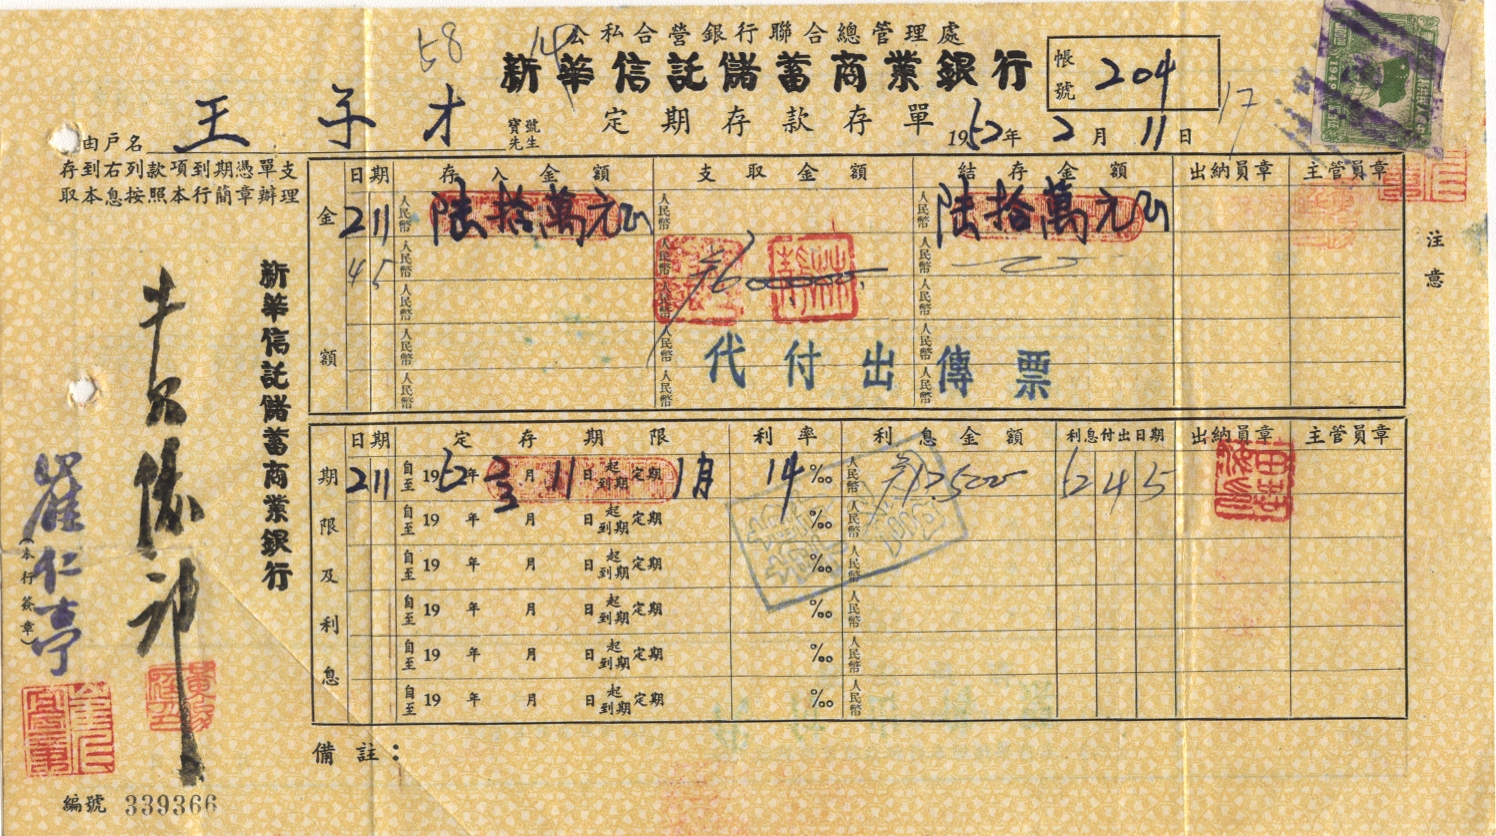 58
14
公私合營銀行聯合總管理處
新華信託儲蓄商業銀行
定期存款存單
帳號 204
17
1952年2月11日
由戶名 王子才 寶號先生
存到右列款項到期憑單支
取本息按照本行簡章辦理
日期 存入金額 支取金額 結存金額 出納員章 主管員章
金額
2 11 人民幣 陸拾萬元正 人民幣 人民幣 陸拾萬元正
4 5 人民幣 人民幣 600000 人民幣
人民幣 人民幣 人民幣
人民幣 人民幣 人民幣
人民幣 人民幣 人民幣
代付出傳票
注意
日期 定存期限 利率 利息金額 利息付出日期 出納員章 主管員章
期限及利息
2 11 自至 1952年2/3月11日起到期定期1月 14‰ 人民幣 12,500 52 4 5
自至 19 年 月 日起到期定期 ‰ 人民幣
自至 19 年 月 日起到期定期 ‰ 人民幣
自至 19 年 月 日起到期定期 ‰ 人民幣
自至 19 年 月 日起到期定期 ‰ 人民幣
自至 19 年 月 日起到期定期 ‰ 人民幣
備註：
新華信託儲蓄商業銀行
仁亭
（本行簽章）
編號 339366